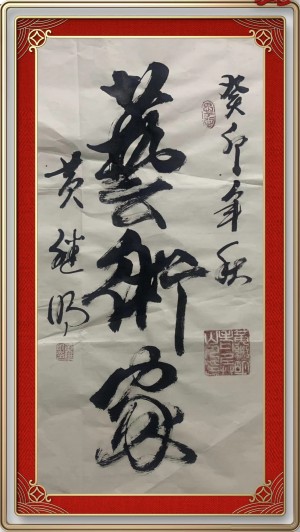 癸卯年秋
藝術家
黄继明